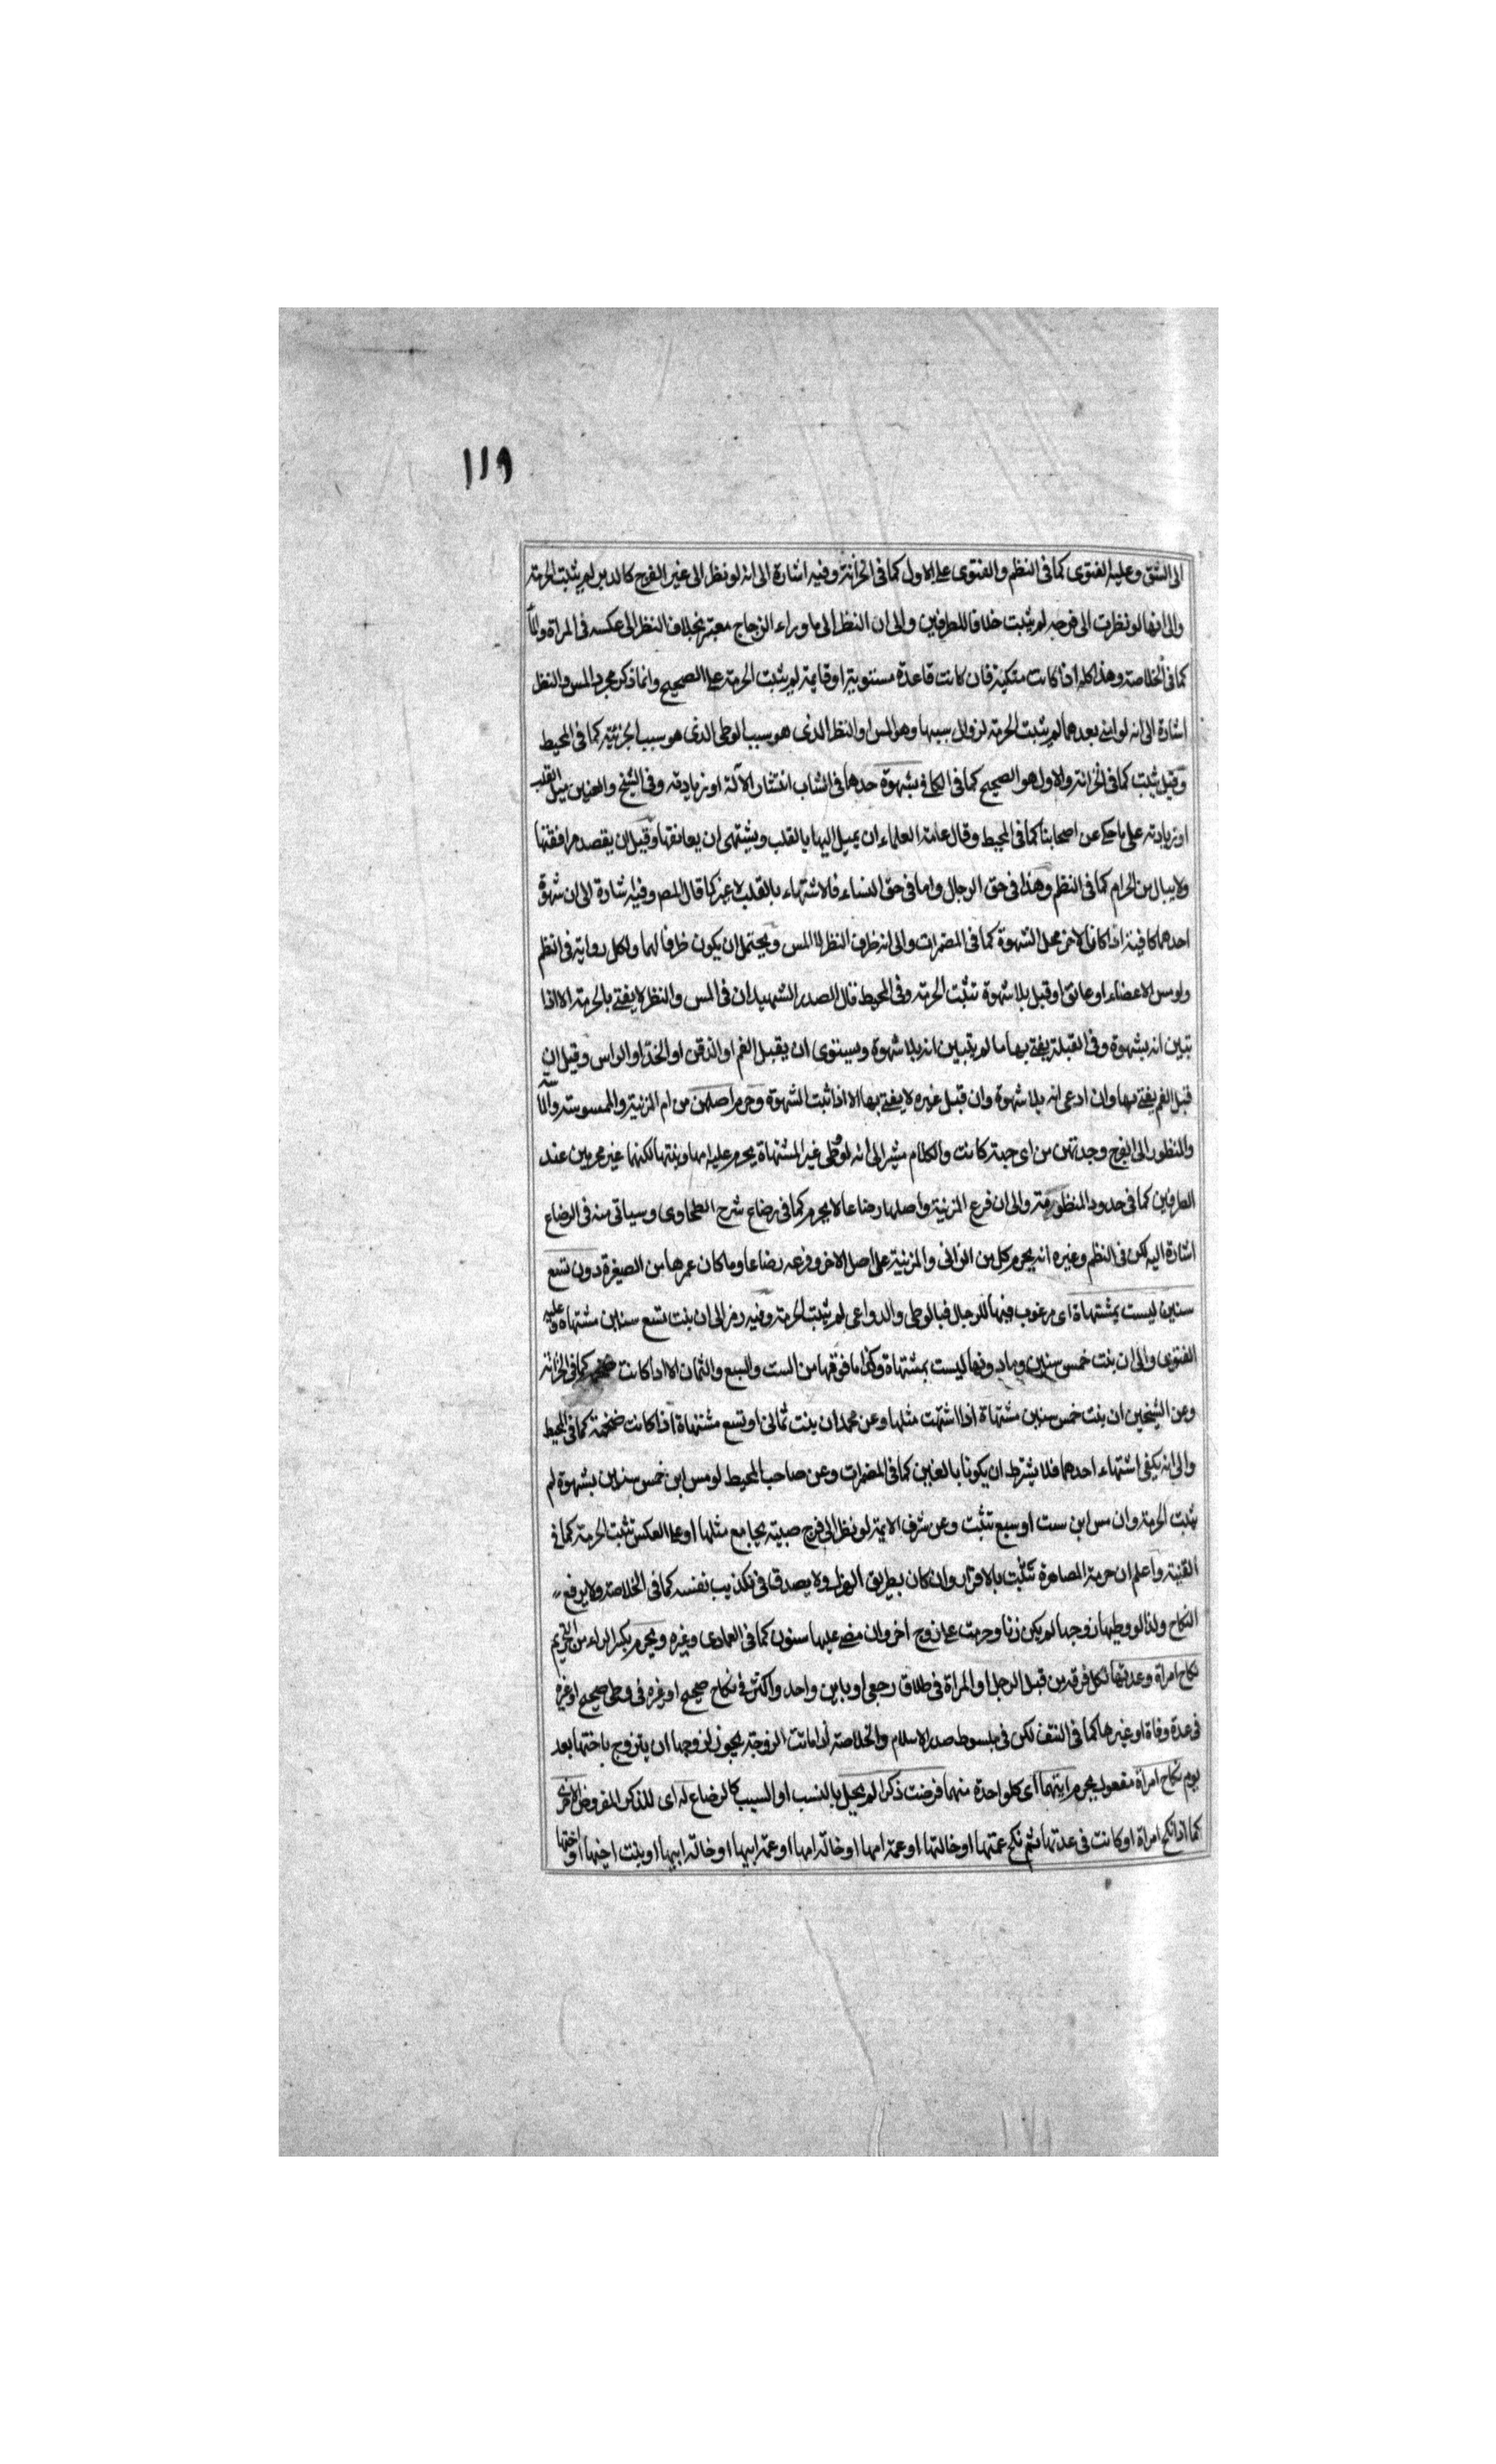 ١١٩
الى الشق وعليه الفتوى كما فى النظم والفتوى على الاول كما فى الخزانة وفيه اشارة الى انه لو نظر الى غير الفرج كالدبر لم يثبت الحرمة
والى انها لو نظرت الى فرجه لم يثبت خلافا للطرفين والى ان النظر الى ما وراء الزجاج معتبر بخلاف النظر الى عكسه فى المرآة والماء
كما فى الخلاصة وهذا كله اذا كانت متكية فان كانت قاعدة مستوية او قايمة لم يثبت الحرمة على الصحيح وانما ذكر مجرد المس والنظر
اشارة الى انه لو انزل بعدهما لم يثبت الحرمة لزوال سببها وهو المس او النظر الذى هو سبب الوطى الذى هو سبب الجزئية كما فى المحيط
وقيل يثبت كما فى الخزانة والاول هو الصحيح كما فى الكافى بشهوة حدها فى الشاب انتشار الآلة او زيادته وفى الشيخ والعنين ميل القلب
او زيادته على ما حكى عن اصحابنا كما فى المحيط وقال عامة العلماء ان يميل اليها بالقلب ويشتهى ان يعانقها وقيل ان يقصد مرافقتها
ولا يبال من الحرام كما فى النظم وهذا فى حق الرجال واما فى حق النساء فالاشتهاء بالقلب لا غير كما قال المص وفيه اشارة الى ان شهوة
احدهما كافية اذا كان الاخر محل الشهوة كما فى المضمرات والى انه ظرف النظر لا المس ويحتمل ان يكون ظرفا لهما ولكل رواية فى النظم
ولو مس الاعضاء او عانق او قبل بلا شهوة تثبت الحرمة وفى المحيط قال الصدر الشهيد ان فى المس والنظر لا يفتى بالحرمة الا اذا
تبين انه بشهوة وفى القبلة يفتى بها ما لم يتبين انه بلا شهوة ويستوى ان يقبل الفم او الذقن او الخد او الراس وقيل ان
قبل الفم يفتى بها وان ادعى انه بلا شهوة وان قبل غيره لا يفتى بها الا اذا ثبت الشهوة وحرم اصلهن من ام المزنية والممسوسة والماسة
والمنظور الى الفرج وجدتهن من اى جهة كانت والكلام مشير الى انه لو وطى غير المشتهاة يحرم عليه امها وبنتها لكنها غير محرمين عند
الطرفين كما فى حدود المنظومة والى ان فرع المزنية واصلها رضاعا لا يحرم كما فى رضاع شرح الطحاوى وسياتى منه فى الرضاع
اشارة اليه لكن فى النظم وغيره انه يحرم كل من الزانى والمزنية على اصل الاخر وفرعه رضاعا وما كان عمرها من الصغيرة دون تسع
سنين ليست بمشتهاة اى مرغوب فيها للرجال فبالوطى والدواعى لم يثبت الحرمة وفيه رمز الى ان بنت تسع سنين مشتهاة وعليه
الفتوى والى ان بنت خمس سنين وما دونها ليست بمشتهاة وكذا ما فوقها من الست والسبع والثمان الا اذا كانت ضخمة كما فى الخزانة
وعن الشيخين ان بنت خمس سنين مشتهاة اذا اشتهت مثلها وعن محمد ان بنت ثمانى او تسع مشتهاة اذا كانت ضخمة كما فى المحيط
والى انه يكفى اشتهاء احدهما فلا يشترط ان يكونا بالغين كما فى المضمرات وعن صاحب المحيط لو مس ابن خمس سنين بشهوة لم
يثبت الحرمة وان مس ابن ست او سبع تثبت وعن شرف الايمة لو نظر الى فرج صبية يجامع مثلها او على العكس تثبت الحرمة كما فى
القنية واعلم ان حرمة المصاهرة تثبت بالاقرار وان كان بطريق الهزل ولا يصدق فى تكذيب نفسه كما فى الخلاصة ولا يرفع
النكاح ولذا لو وطيها زوجها لم يكن زنا وحرمت على زوج اخر وان مضى عليها سنون كما فى العمادى وغيره ويحرم بكسر الراء من التحريم
نكاح امراة وعدتها لكل فرقة من قبل الرجل او المراة فى طلاق رجعى او باين واحد واكثر فى نكاح صحيح او غيره فى وطى صحيح او غيره
فى عدة وفاة او غيرها كما فى النتف لكن فى مبسوط صدر الاسلام والخلاصة اذا ماتت الزوجة يجوز لزوجها ان يتزوج باختها بعد
يوم نكاح امراة مفعول يحرم ايتهما اى كل واحدة منهما فرضت ذكرا لم يحل بالنسب او السبب كالرضاع له اى للذكر المفروض الاخرى
كما اذا نكح امراة او كانت فى عدتها ثم نكح عمتها او خالتها او عمة امها او خالة امها او عمة ابيها او خالة ابيها او بنت اخيها او اختها